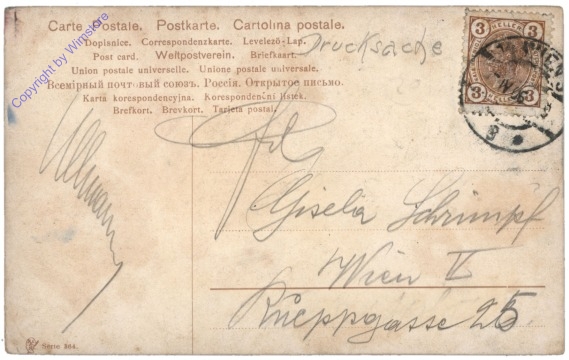 Carte Postale. Postkarte. Cartolina postale.
Dopisnice. Correspondenzkarte. Levelező-Lap.
Post card. Weltpostverein. Briefkaart.
Union postale universelle. Unione postale universale.
Всемірный почтовый союзъ. Россія. Открытое письмо.
Karta korespondencyjna. Korespondenční lístek.
Brefkort. Brevkort. Tarjeta postal.
Drucksache
3 HELLER 3
3 3
WIEN
8
Copyright by Wimstore
Ullmann
Frl.
Gisela Schrimpf
Wien II
Rueppgasse 25
Serie 304.